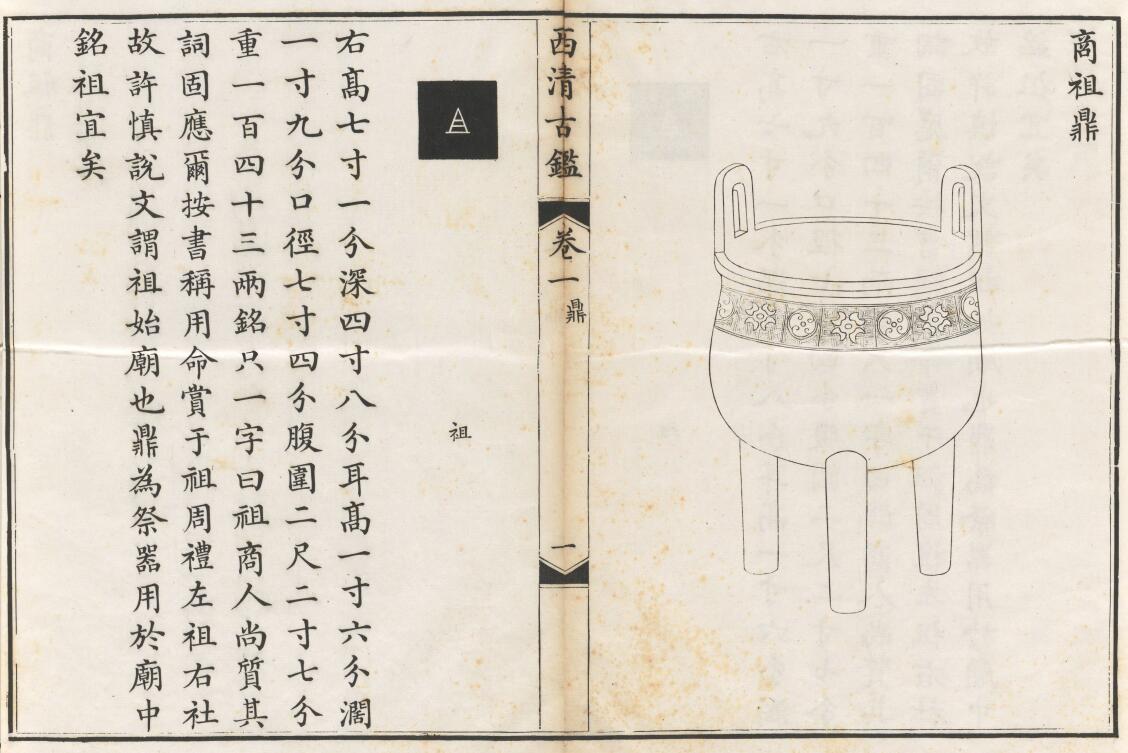 商祖鼎
西清古鑑 卷一 鼎 一
祖
右髙七寸一分深四寸八分耳髙一寸六分濶
一寸九分口徑七寸四分腹圍二尺二寸七分
重一百四十三兩銘只一字曰祖商人尚質其
詞固應爾按書稱用命賞于祖周禮左祖右社
故許慎說文謂祖始廟也鼎為祭器用於廟中
銘祖宜矣